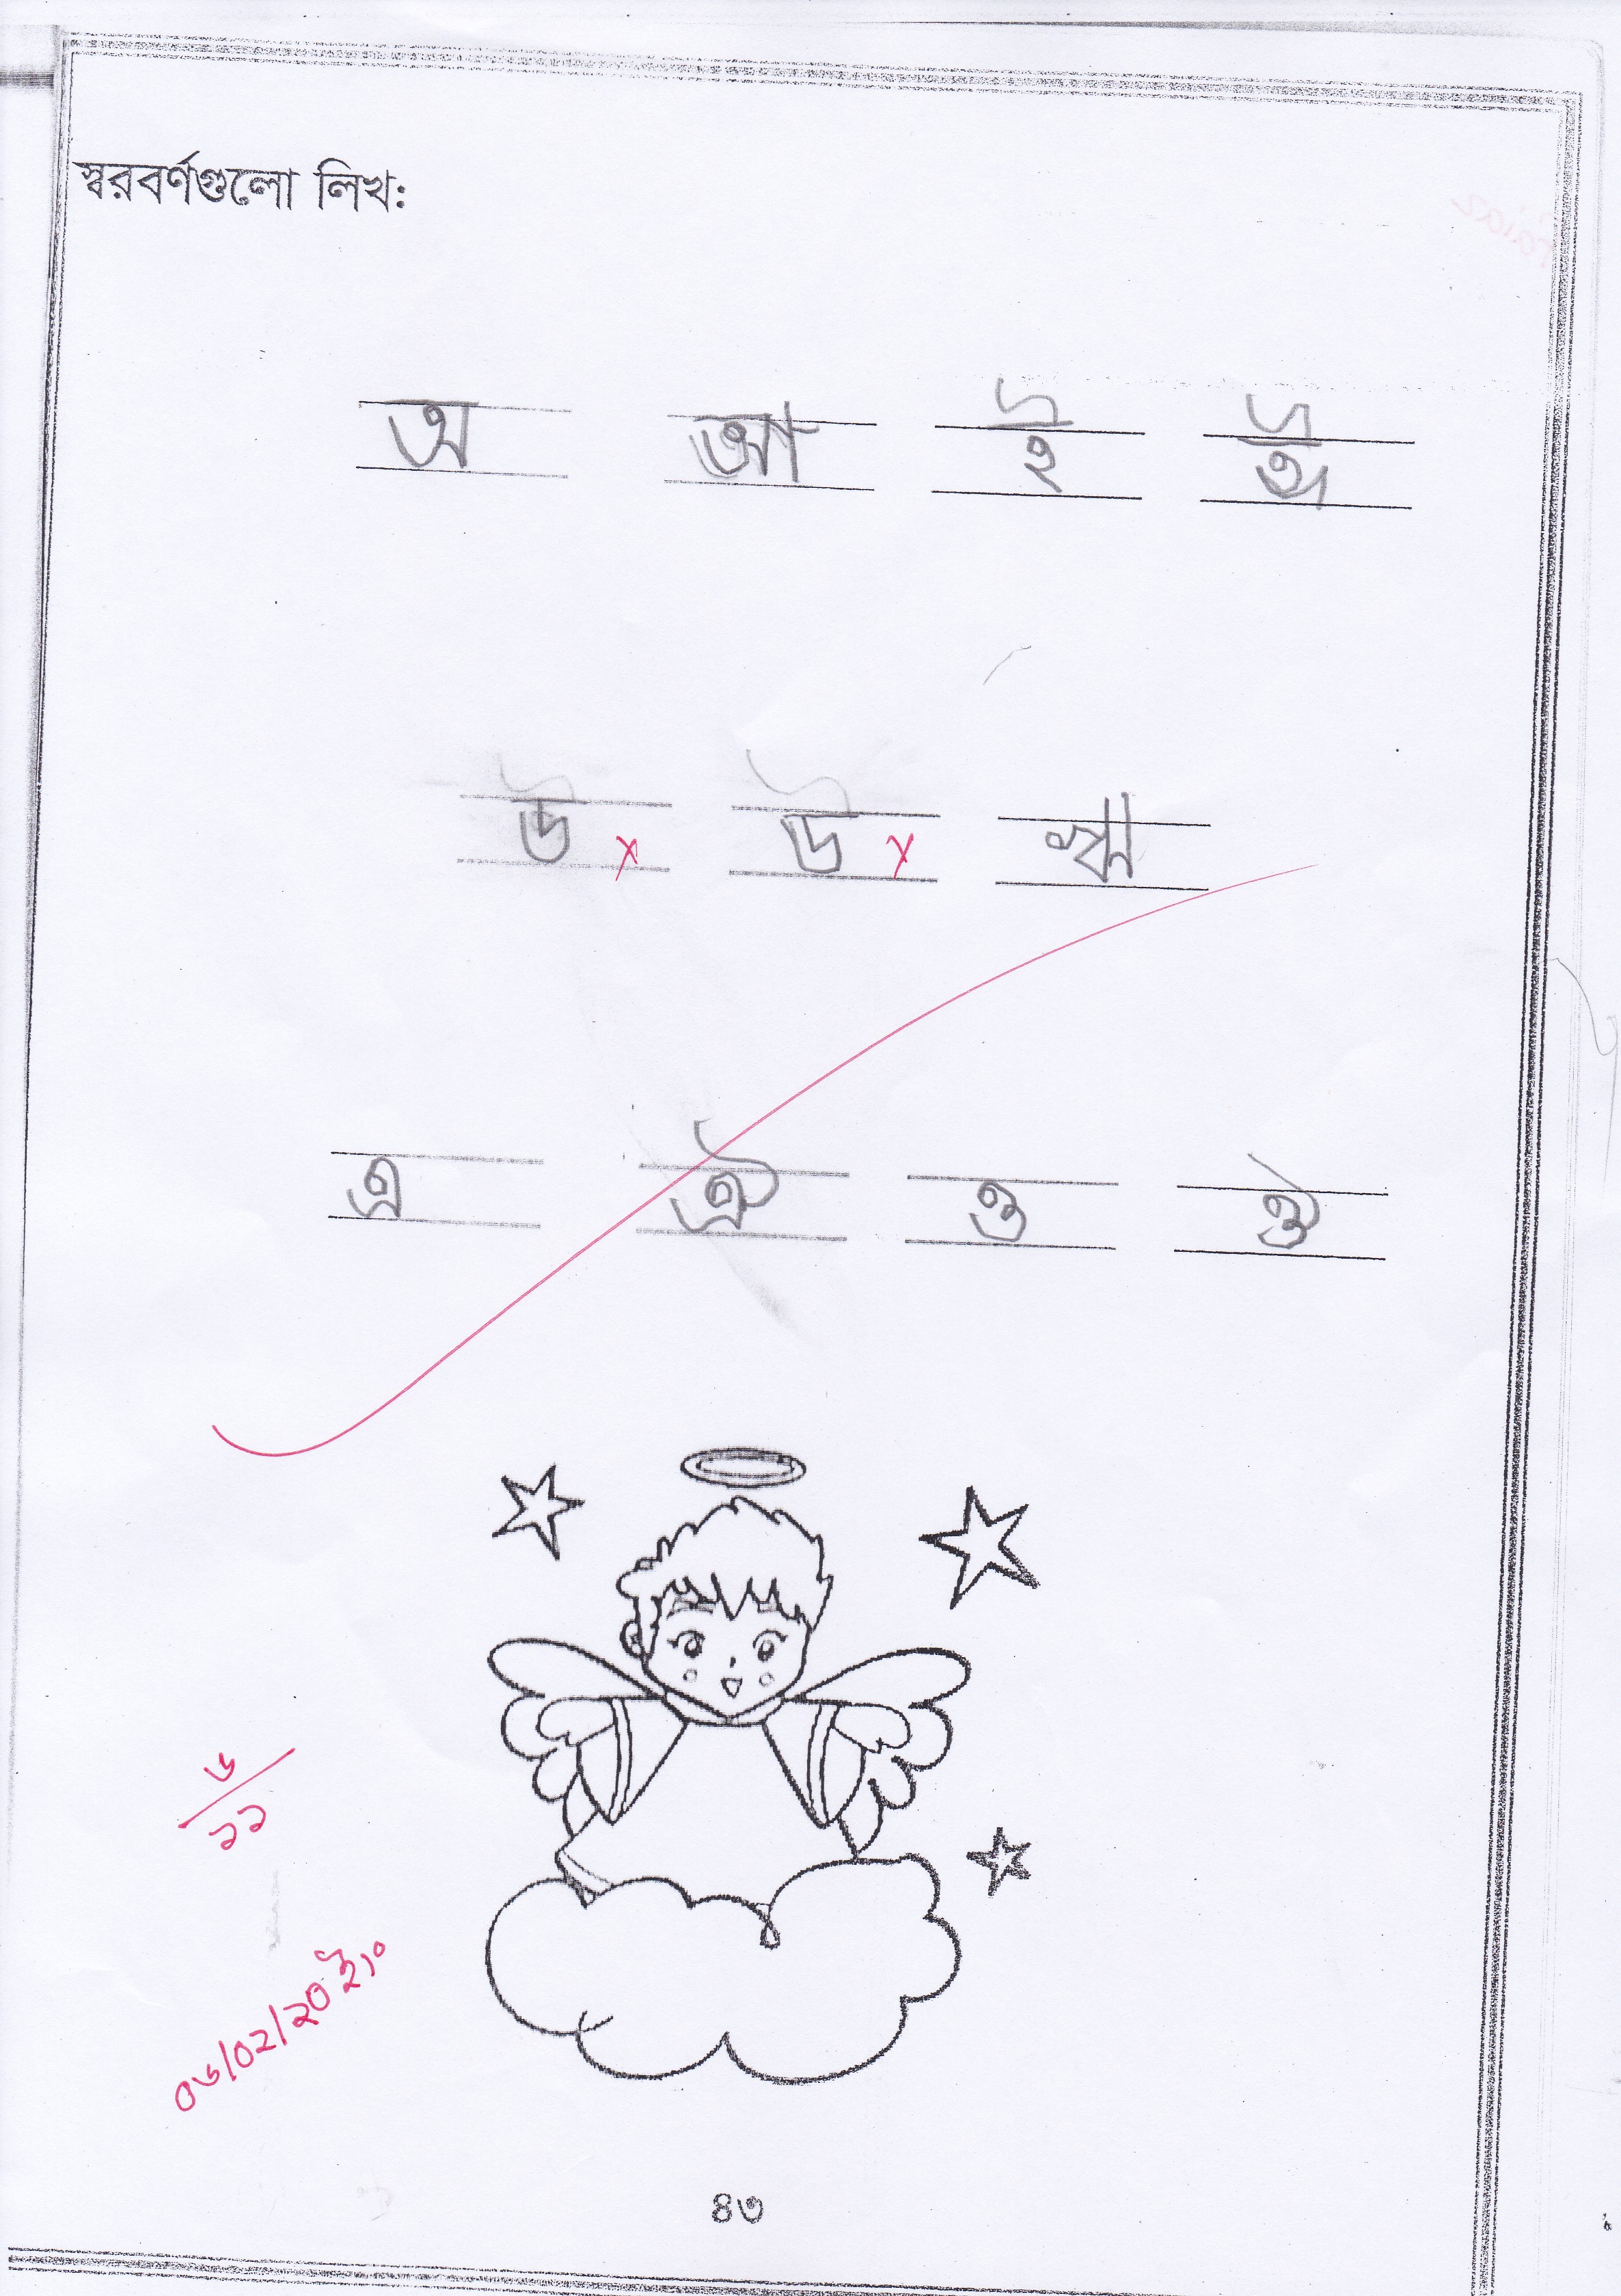 স্বরবর্ণগুলো লিখ:
অ আ ই ঈ
উ x উ x ঋ
এ ঐ ও ঔ
৬
১১
০৬/০২/২০ইং
৪৩